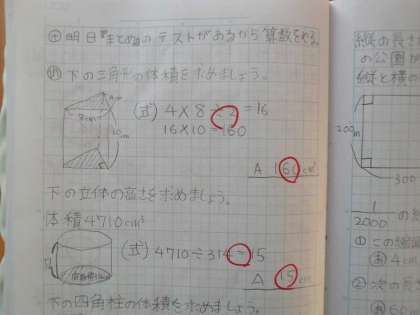 ㋱明日まとめのテストがあるから算数をやる。
下の三角形の体積を求めましょう。
8cm
10cm
(式) 4×8÷2=16
16×10=160
A 160cm³
下の立体の高さを求めましょう。
体積4710cm³
(式) 4710÷314=15
A 15cm
下の四角柱の体積を求めましょう。
縦の長さ
の公園が
縦と横の
200m
300
1
2000
の縮
① この縮図
答 4cm
② 次の長さ
答 60